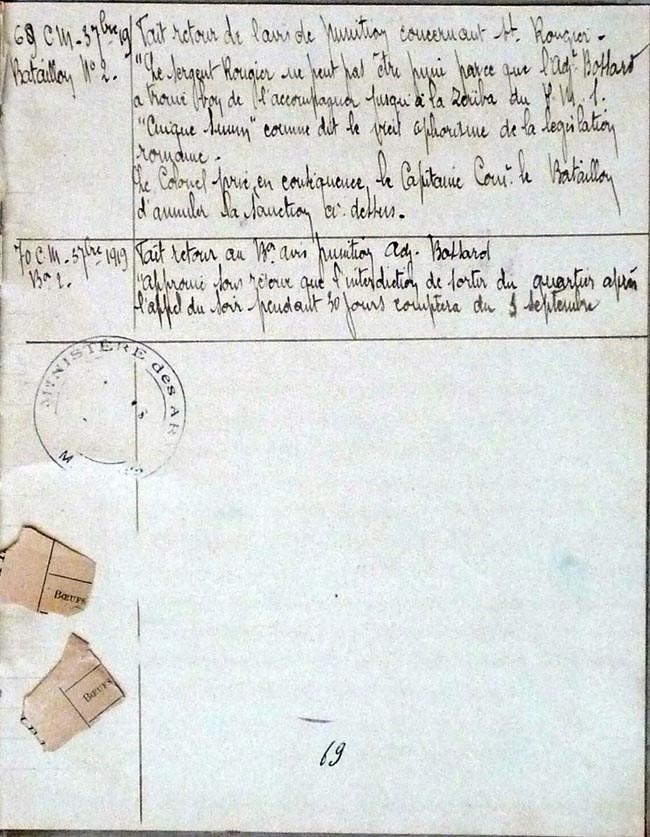 69 C.M. - 3 7bre 19
Bataillon N° 2.
Fait retour de l'avis de punition concernant St. Rougier -
"Le sergent Rougier ne peut pas être puni parce que l'Adj. Bossard
a trouvé bon de l'accompagner jusqu'à la Zériba du
"Cuique suum" comme dit le vieil aphorisme de la législation
romaine -
Le Colonel prie, en conséquence, le Capitaine Comt. le Bataillon
d'annuler la sanction ci-dessus.
70 C.M. - 3 7bre 1919
Bon 2.
Fait retour au Bon avis punition Adj. Bossard
"approuvé sous réserve que l'interdiction de sortir du quartier après
l'appel du soir pendant 30 jours comptera du 3 septembre
MINISTÈRE des AR
M
BŒUFS
BŒUFS
69